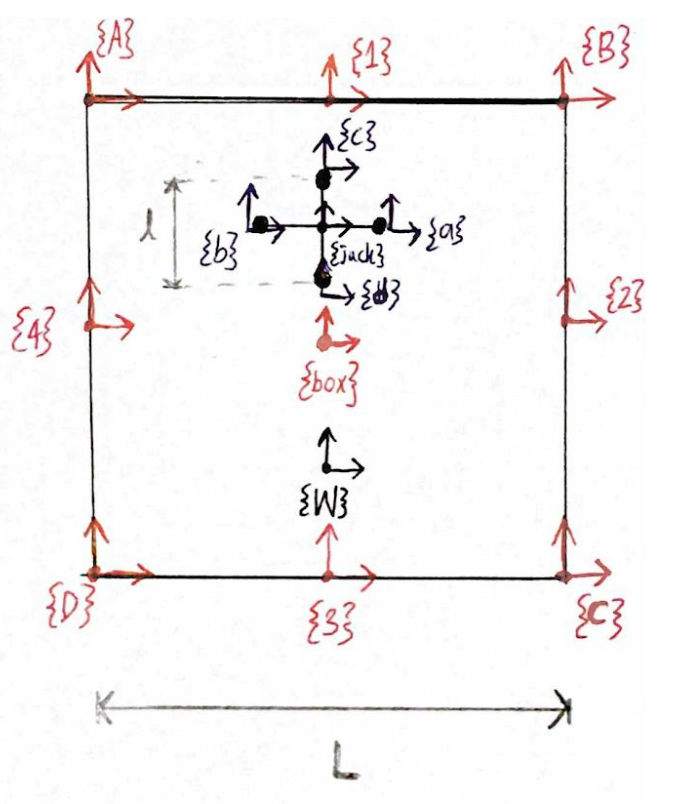 {A}
{1}
{B}
{c}
l
{b}
{a}
{jack}
{d}
{4}
{2}
{box}
{W}
{D}
{3}
{C}
L